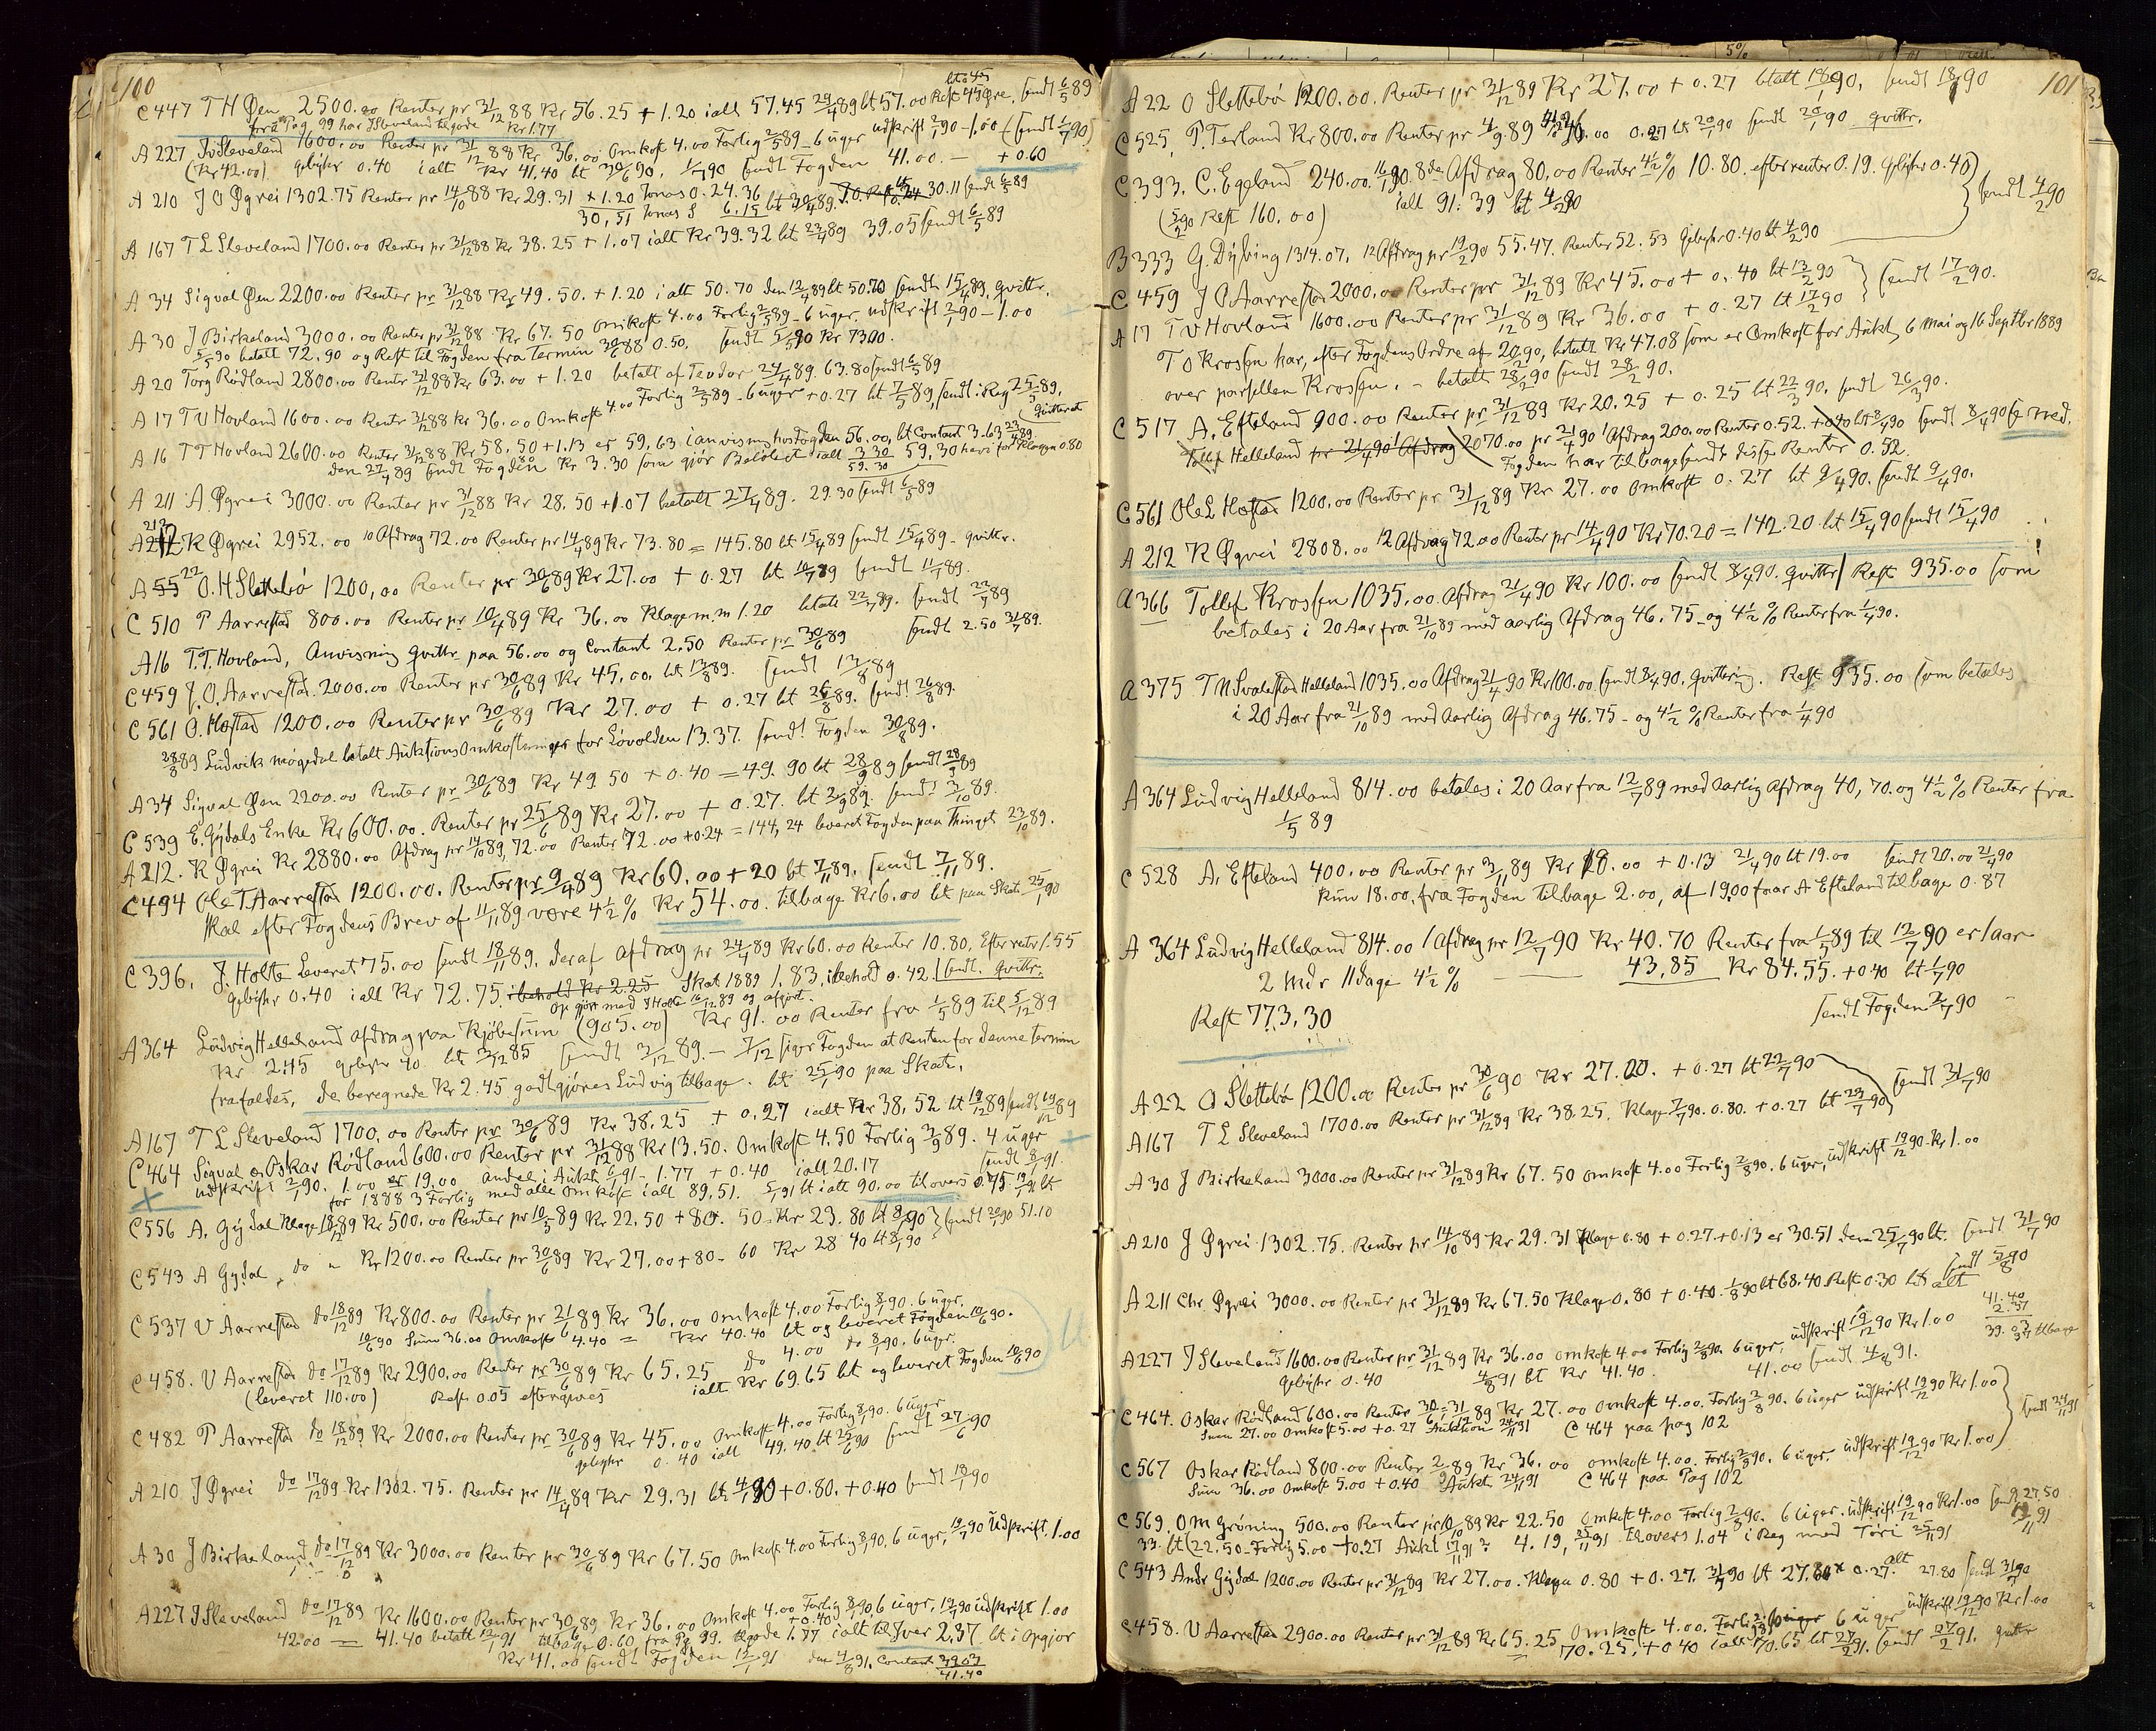 100
C 447 T H Øen 2500.00 Renter pr 31/12 88 Kr 56.25 + 1.20 ialt 57.45 29/4 89 bt 57.00 Rest 45 Øre. sendt 6/5 89
fra Pag 99 har I Sleveland tilgode Kr 1.77
A 227 I Sleveland 1600.00 Renter pr 31/12 88 Kr 36.00 Omkost 4.00 Forlig 2/5 89 - 6 uger udskrift 2/1 90 - 1.00
(Kr 42.00) gebyhr 0.40 ialt Kr 41.40 bt 30/6 90. 1/7 90 sendt Fogden 41.00. - + 0.60
A 210 J O Øgrei 1302.75 Renter pr 14/10 88 Kr 29.31 + 1.20 Jonas O. 24.36
30,51 Jonas S 6.15 bt 30/4 89. 30.11 sendt 6/5 89
A 167 T L Sleveland 1700.00 Renter pr 31/12 88 Kr 38.25 + 1.07 ialt Kr 39.32 bt 23/4 89 39.05 sendt 6/5 89
A 34 Sigval Øen 2200.00 Renter pr 31/12 88 Kr 49.50. + 1.20 ialt 50.70 den 12/4 89 bt 50.70 sendt 15/4 89. qvittr.
A 30 J Birkeland 3000.00 Renter pr 31/12 88 Kr 67.50 Omkost 4.00 Forlig 2/5 89 - 6 uger. udskrift 2/1 90 - 1.00
5/5 90 betalt 72.90 og Rest til Fogden fra Termin 30/6 88 0.50. sendt 5/5 90 Kr 73.00.
A 20 Torg Rødland 2800.00 Renter 31/12 88 Kr 63.00 + 1.20 betalt af Teodor 24/4 89. 63.80 sendt 6/5 89
A 17 T V Hovland 1600.00 Renter 31/12 88 Kr 36.00 Omkost 4.00 Forlig 2/5 89 - 6 uger + 0.27 bt 7/5 89, sendt i Reg 25/5 89.
Qvitteret
A 16 T T Hovland 2600.00 Renter 31/12 88 Kr 58.50 + 1.13 er 59.63 i anvisning hos Fogden 56.00, bt Contant 3.63 23/4 89
den 27/4 89 sendt Fogden Kr 3.30 som gjør Beløbet ialt 59.30 heri for Klagen 0.80
A 211 A Øgrei 3000.00 Renter pr 31/12 88 Kr 28.50 + 1.07 betalt 27/4 89. 29.30 sendt 6/5 89
A 212 K Øgrei 2952.00 10 Afdrag 72.00 Renter pr 14/4 89 Kr 73.80 = 145.80 bt 15/4 89 sendt 15/4 89 - qvittr.
A 22 O. H Slettebø 1200.00 Renter pr 30/6 89 Kr 27.00 + 0.27 bt 10/7 89 sendt 11/7 89.
C 510 P Aarrestad 800.00 Renter pr 10/4 89 Kr 36.00 Klage m.m 1.20 betalt 22/7 89. sendt 22/7 89
A 16 T. T. Hovland, Anvisning qvittr paa 56.00 og Contant 2.50 Renter pr 30/6 89 sendt 2.50 31/7 89.
C 459 J. O. Aarrestad. 2000.00 Renter pr 30/6 89 Kr 45.00. bt 13/8 89. sendt 13/8 89
C 561 O. Hostad 1200.00 Renter pr 30/6 89 Kr 27.00 + 0.27 bt 26/8 89. sendt 26/8 89.
28/8 89 Ludvik møgedal betalt Auktions Omkostninger for Løvolden 13.37. sendt Fogden 30/8 89.
A 34 Sigval Øen 2200.00 Renter pr 30/6 89 Kr 49.50 + 0.40 = 49.90 bt 28/9 89 sendt 28/9 89
C 539 E. Gydals Enke Kr 600.00. Renter pr 25/6 89 Kr 27.00 + 0.27. bt 3/9 89. sendt 3/10 89.
A 212. K Øgrei Kr 2880.00 Afdrag pr 14/10 89, 72.00 Renter 72.00 + 0.24 = 144,24 leveret Fogden paa Thinget 23/10 89.
C 494 Ole T. Aarrestad 1200.00. Renter pr 9/4 89 Kr 60.00 + 20 bt 7/11 89. sendt 7/11 89.
skal efter Fogdens Brev af 11/11 89 være 4 1/2 % Kr 54.00. tilbage Kr 6.00 bt paa Skat 25/1 90
C 396. J. Holte Leveret 75.00 sendt 18/11 89. deraf Afdrag pr 24/4 89 Kr 60.00 Renter 10.80. Efterretr 1.55
gebyhr 0.40 ialt Kr 72.75. ibehold Kr 2.25 Skat 1889 1.83, ibehold 0.42. sendt. qvittr.
Opgjør med J Holte 16/12 89 og afgjort.
A 364 Ludvig Helleland Afdrag paa Kjøbesum (905.00) Kr 91.00 Renter fra 1/5 89 til 5/12 89
Kr 2.45 gebyhr 40 bt 3/12 85 sendt 3/12 89. - 7/12 siger Fogden at Renten for denne termin
frafaldes, de beregnede Kr 2.45 godtgjøres Ludvig tilbage. bt 25/1 90 paa Skat.
A 167 T L Sleveland 1700.00 Renter pr 30/6 89 Kr 38.25 + 0.27 ialt Kr 38.52 bt 19/12 89 sendt 19/12 89
C 464 Sigval og Oskar Rødland 600.00 Renter pr 31/12 88 Kr 13.50. Omkost 4.50 Forlig 3/9 89. 4 uger
udskrift 2/1 90. 1.00 er 19.00 andel i Aukt 6/1 91 - 1.77 + 0.40 ialt 20.17 sendt 8/1 91.
for 1888 3 Forlig med alle Omkost ialt 89.51. 5/1 91 bt ialt 90.00 tilovers 0.45
C 556 A. Gydal Klage 18/12 89 Kr 500.00 Renter pr 10/5 89 Kr 22.50 + 80. 50 - Kr 23.80 bt 8/1 90 sendt 20/1 90 51.10
C 543 A Gydal, do " Kr 1200.00 Renter pr 30/6 89 Kr 27.00 + 80 - 60 Kr 28 40 bt 8/1 90
C 537 V Aarrestad do 18/12 89 Kr 800.00 Renter pr 2/1 89 Kr 36.00 Omkost 4.00 Forlig 8/1 90. 6 uger.
10/6 90 Sum 36.00 Omkost 4.40 = Kr 40.40 bt og leveret Fogden 10/6 90.
C 458. V Aarrestad do 17/12 89 Kr 2900.00 Renter pr 30/6 89 Kr 65.25 do 4.00 do 8/1 90. 6 uger.
(leveret 110.00) Rest 0.05 eftergives ialt Kr 69.65 bt og leveret Fogden 10/6 90
C 482 P Aarrestad do 18/12 89. Kr 2000.00 Renter pr 30/6 89 Kr 45.00 Omkost 4.00 Forlig 8/1 90. 6 uger
gebyhr 0.40 ialt 49.40 bt 25/6 90 sendt 27/6 90
A 210 J Øgrei do 17/12 89. Kr. 1302.75. Renter pr 14/4 89 Kr 29.31 bt 4/1 90 + 0.80. + 0.40 sendt 18/1 90
A 30 J Birkeland, do 17/12 89 Kr 3000.00 Renter pr 30/6 89 Kr 67.50 Omkost 4.00 Forlig 8/1 90. 6 uger, 19/7 90 Udskrift. 1.00
A 227 J Sleveland do 17/12 89 Kr 1600.00 Renter pr 30/6 89 Kr 36.00 Omkost 4.00 Forlig 8/1 90. 6 uger, 19/7 90 udskrift 1.00
42.00 = 41.40 betalt 12/1 91 tilbage 0.60, fra Pg 99. tilgode 1.77 ialt til Iver 2.37 bt i Opgjør
Kr 41.00 sendt Fogden 12/1 91 den 4/8 91, Contant 39.03
41.40
101
A 22 O Slettebø 1200.00. Renter pr 31/12 89 Kr 27.00 + 0.27 betalt 18/1 90, sendt 18/1 90
C 525. P. Terland Kr 800.00 Renter pr 4/9 89 36.00 0.27 bt 20/1 90 sendt 20/1 90 qvittr.
C 393. C. Egeland 240.00. 16/1 90. 8de Afdrag 80.00 Renter 4 1/2 % 10.80. efterrenter 0.19. gebyhr 0.40
(5/2 90 Rest 160.00) ialt 91.39 bt 4/2 90 sendt 4/2 90
B 333 G. Dybing 1314.07. 12 Afdrag pr 19/2 90 55.47. Renter 52.53 Gebyhr 0.40 bt 4/2 90
C 459 J O Aarrestad 2000.00 Renter pr 31/12 89 Kr 45.00 + 0.40 bt 13/2 90 sendt 17/2 90.
A 17 T V Hovland 1600.00 Renter pr 31/12 89 Kr 36.00 + 0.27 bt 17/2 90
T O Krossen har, efter Fogdens Ordre af 20/2 90, betalt Kr 47.08 som er Omkost for Aukt, 6 Mai og 16 Septbr 1889
over parsellen Krossen. - betalt 28/2 90 sendt 28/2 90.
C 517 A. Efteland 900.00 Renter pr 31/12 89 Kr 20.25 + 0.25 bt 22/3 90. sendt 26/3 90.
Tollef Helleland pr 21/4 90 1 Afdrag 2070.00 pr 21/4 90 1 Afdrag 200.00 Renter 0.52. + 0.40 bt 8/4 90 sendt 8/4 90 se ned.
Fogden har tilbagesendt disse Renter 0.52.
C 561 Ole L Hostad 1200.00 Renter pr 31/12 89 Kr 27.00 Omkost 0.27 bt 9/4 90. sendt 9/4 90.
A 212 K Øgrei 2808.00 12 Afdrag 72.00 Renter pr 14/4 90 Kr 70.20 = 142.20 bt 15/4 90 sendt 15/4 90
A 366 Tollef Krossen 1035.00. Afdrag 21/4 90 Kr 100.00 sendt 8/4 90. qvittr. Rest 935.00 som
betales i 20 Aar fra 21/10 89 med aarlig Afdrag 46.75 - og 4 1/2 % Renter fra 1/4 90.
A 375 T M Svalestad Helleland 1035.00 Afdrag 21/4 90 Kr 100.00 sendt 8/4 90. qvittering. Rest 935.00 som betales
i 20 Aar fra 21/10 89 med Aarlig Afdrag 46.75 - og 4 1/2 % Renter fra 1/4 90
A 364 Ludvig Helleland 814.00 betales i 20 Aar fra 12/7 89 med Aarlig Afdrag 40,70. og 4 1/2 % Renter fra
1/5 89
C 528 A. Efteland 400.00 Renter pr 3/11 89 Kr 18.00 + 0.13 21/4 90 bt 19.00 sendt 20.00 21/4 90
kun 18.00. fra Fogden tilbage 2.00, af 19.00 faar A Efteland tilbage 0.87
A 364 Ludvig Helleland 814.00 1 Afdrag pr 12/7 90 Kr 40.70 Renter fra 1/5 89 til 12/7 90 er 1 aar
2 Mdr 11 dage 4 1/2 % 43,85 Kr 84.55. + 0.40 bt 1/7 90
Rest 773.30 sendt Fogden 2/7 90
A 22 O Slettebø 1200.00 Renter pr 30/6 90 Kr 27.00. + 0.27 bt 22/7 90
A 167 T L Sleveland 1700.00 Renter pr 31/12 89 Kr 38.25. Klage 7/7 90. 0.80. + 0.27 bt 23/7 90 sendt 31/7 90
A 30 J Birkeland 3000.00 Renter pr 31/12 89 Kr 67.50 Omkost 4.00 Forlig 2/8 90. 6 uger, udskrift 19/12 90 - Kr 1.00
A 210 J Øgrei 1302.75. Renter pr 14/10 89 Kr 29.31 Klage 0.80 + 0.27 + 0.13 er 30.51 den 25/7 90 bt. sendt 31/7 90
A 211 Chr. Øgrei 3000.00 Renter pr 31/12 89 Kr 67.50 Klage 0.80 + 0.40. 1/8 90 bt 68.40 Rest 0.30 bt alt sendt 5/8 90
A 227 J Sleveland 1600.00 Renter pr 31/12 89 Kr 36.00 Omkost 4.00 Forlig 2/8 90. 6 uger, udskrift 19/12 90 Kr 1.00
gebyhr 0.40 4/8 91 bt Kr 41.40. 41.00 sendt 4/8 91.
41.40
2.37
39.03
C 464. Oskar Rødland 600.00 Renter 30/6 & 31/12 89 Kr 27.00 Omkost 4.00. Forlig 2/8 90. 6 uger udskrift 19/12 90 Kr 1.00
Sum 27.00 Omkost 5.00 + 0.27 Auktion 24/11 91 C 464 paa pag 102
C 567 Oskar Rødland 800.00 Renter 2/9 89 Kr 36.00 Omkost 4.00. Forlig 2/8 90. 6 uger. udskrift 19/12 90 Kr 1.00
Sum 36.00 Omkost 5.00 + 0.40 Aukt 24/11 91 C 464 paa Pag 102
C 569. O M Grøning 500.00 Renter pr 10/10 89 Kr 22.50 Omkost 4.00 Forlig 2/8 90. 6 uger. udskrift 19/12 90 Kr 1.00 sendt 27.50
33. bt (22.50 - Forlig 5.00 + 0.27 Aukt 17/11 91 4.19, 25/11 91 tilovers 1.04 i Reg med Tøri 25/11 91
C 543 Andr Gydal 1200.00 Renter pr 31/12 89 Kr 27.00. Klagen 0.80 + 0.27. 31/7 90 bt 27.80 0.27. alt 27.80 sendt 31/7 90
C 458. V Aarrestad 2900.00 Renter pr 31/12 89 Kr 65.25 Omkost 4.00. Forlig 6 uger udskrift 19/12 90 Kr 1.00
70.25, + 0.40 ialt 70.65 bt 27/2 91. sendt 27/2 91. qvittr